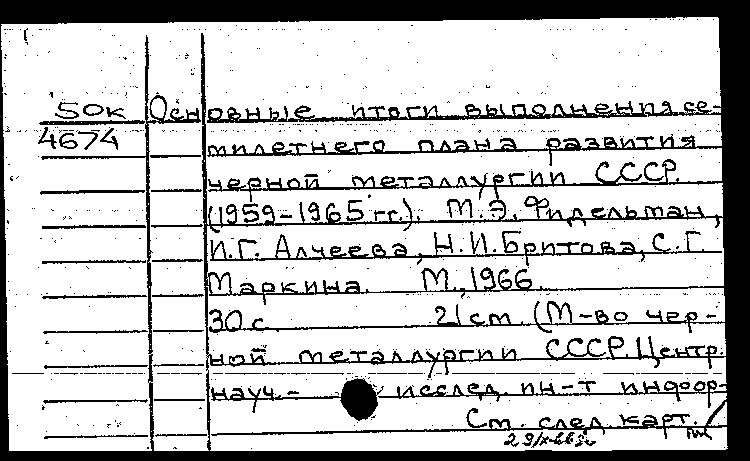 50к Основные итоги выполнения се-
4674 милетнего плана развития
черной металлургии СССР.
(1959-1965 гг.). М.Э. Фидельман,
И.Г. Алчеева, Н.И. Бритова, С.Г.
Маркина. М., 1966.
30 с. 21 cm. (М-во чер-
ной металлургии СССР. Центр.
науч.- исслед. ин-т инфор-
См. след. карт.